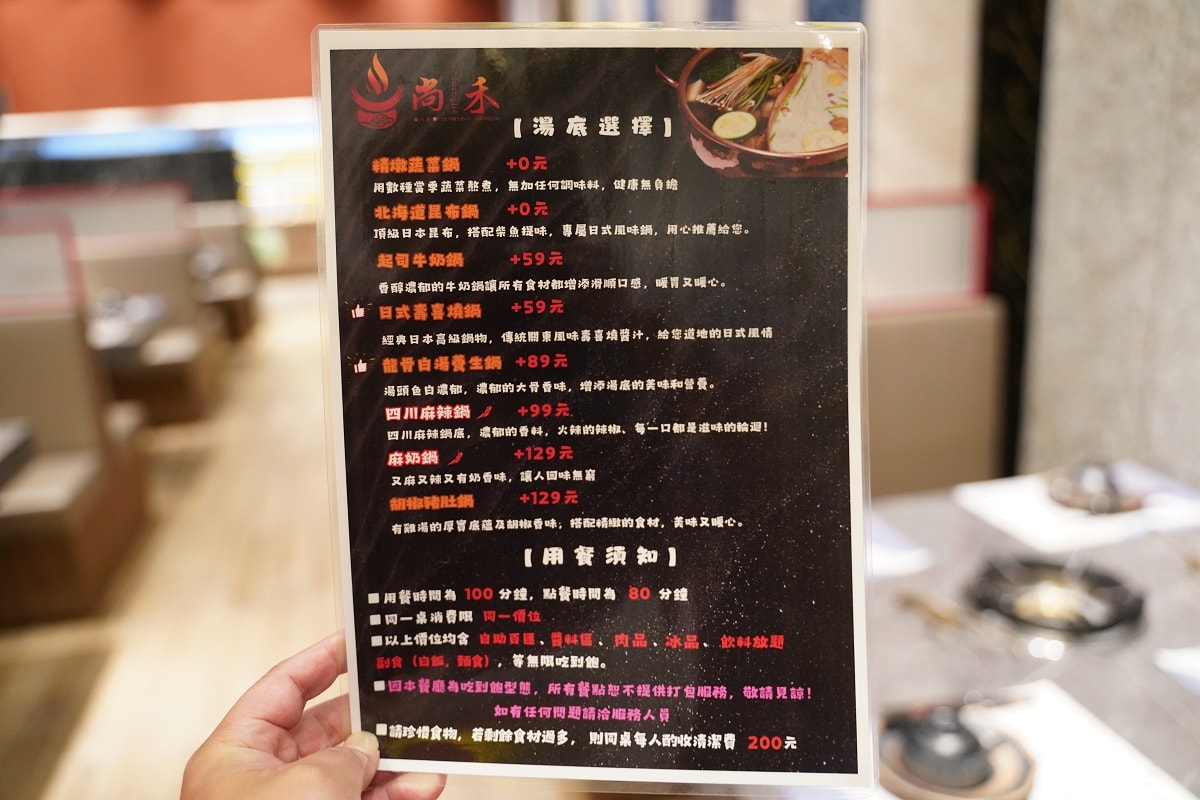 尚禾
【湯底選擇】
精燉蔬菜鍋 +0元
用數種當季蔬菜熬煮，無加任何調味料，健康無負擔
北海道昆布鍋 +0元
頂級日本昆布，搭配柴魚提味，專屬日式風味鍋，用心推薦給您。
起司牛奶鍋 +59元
香醇濃郁的牛奶鍋讓所有食材都增添滑順口感，暖胃又暖心。
日式壽喜燒鍋 +59元
經典日本高級鍋物，傳統關東風味壽喜燒醬汁，給您道地的日式風情
龍骨白湯養生鍋 +89元
湯頭色白濃郁，濃郁的大骨香味，增添湯底的美味和營養。
四川麻辣鍋 +99元
四川麻辣鍋底，濃郁的香料，火辣的辣椒、每一口都是滋味的輪迴！
麻奶鍋 +129元
又麻又辣又有奶香味，讓人回味無窮
胡椒豬肚鍋 +129元
有雞湯的厚實底蘊及胡椒香味，搭配精緻的食材，美味又暖心。
【用餐須知】
■用餐時間為 100 分鐘，點餐時間為 80 分鐘
■同一桌消費限 同一價位
■以上價位均含 自助百匯、醬料區、肉品、冰品、飲料放題
副食（白飯，麵食），等無限吃到飽。
■因本餐廳為吃到飽型態，所有餐點恕不提供打包服務，敬請見諒！
如有任何問題請洽服務人員
■請珍惜食物，若剩餘食材過多，則同桌每人酌收清潔費 200元